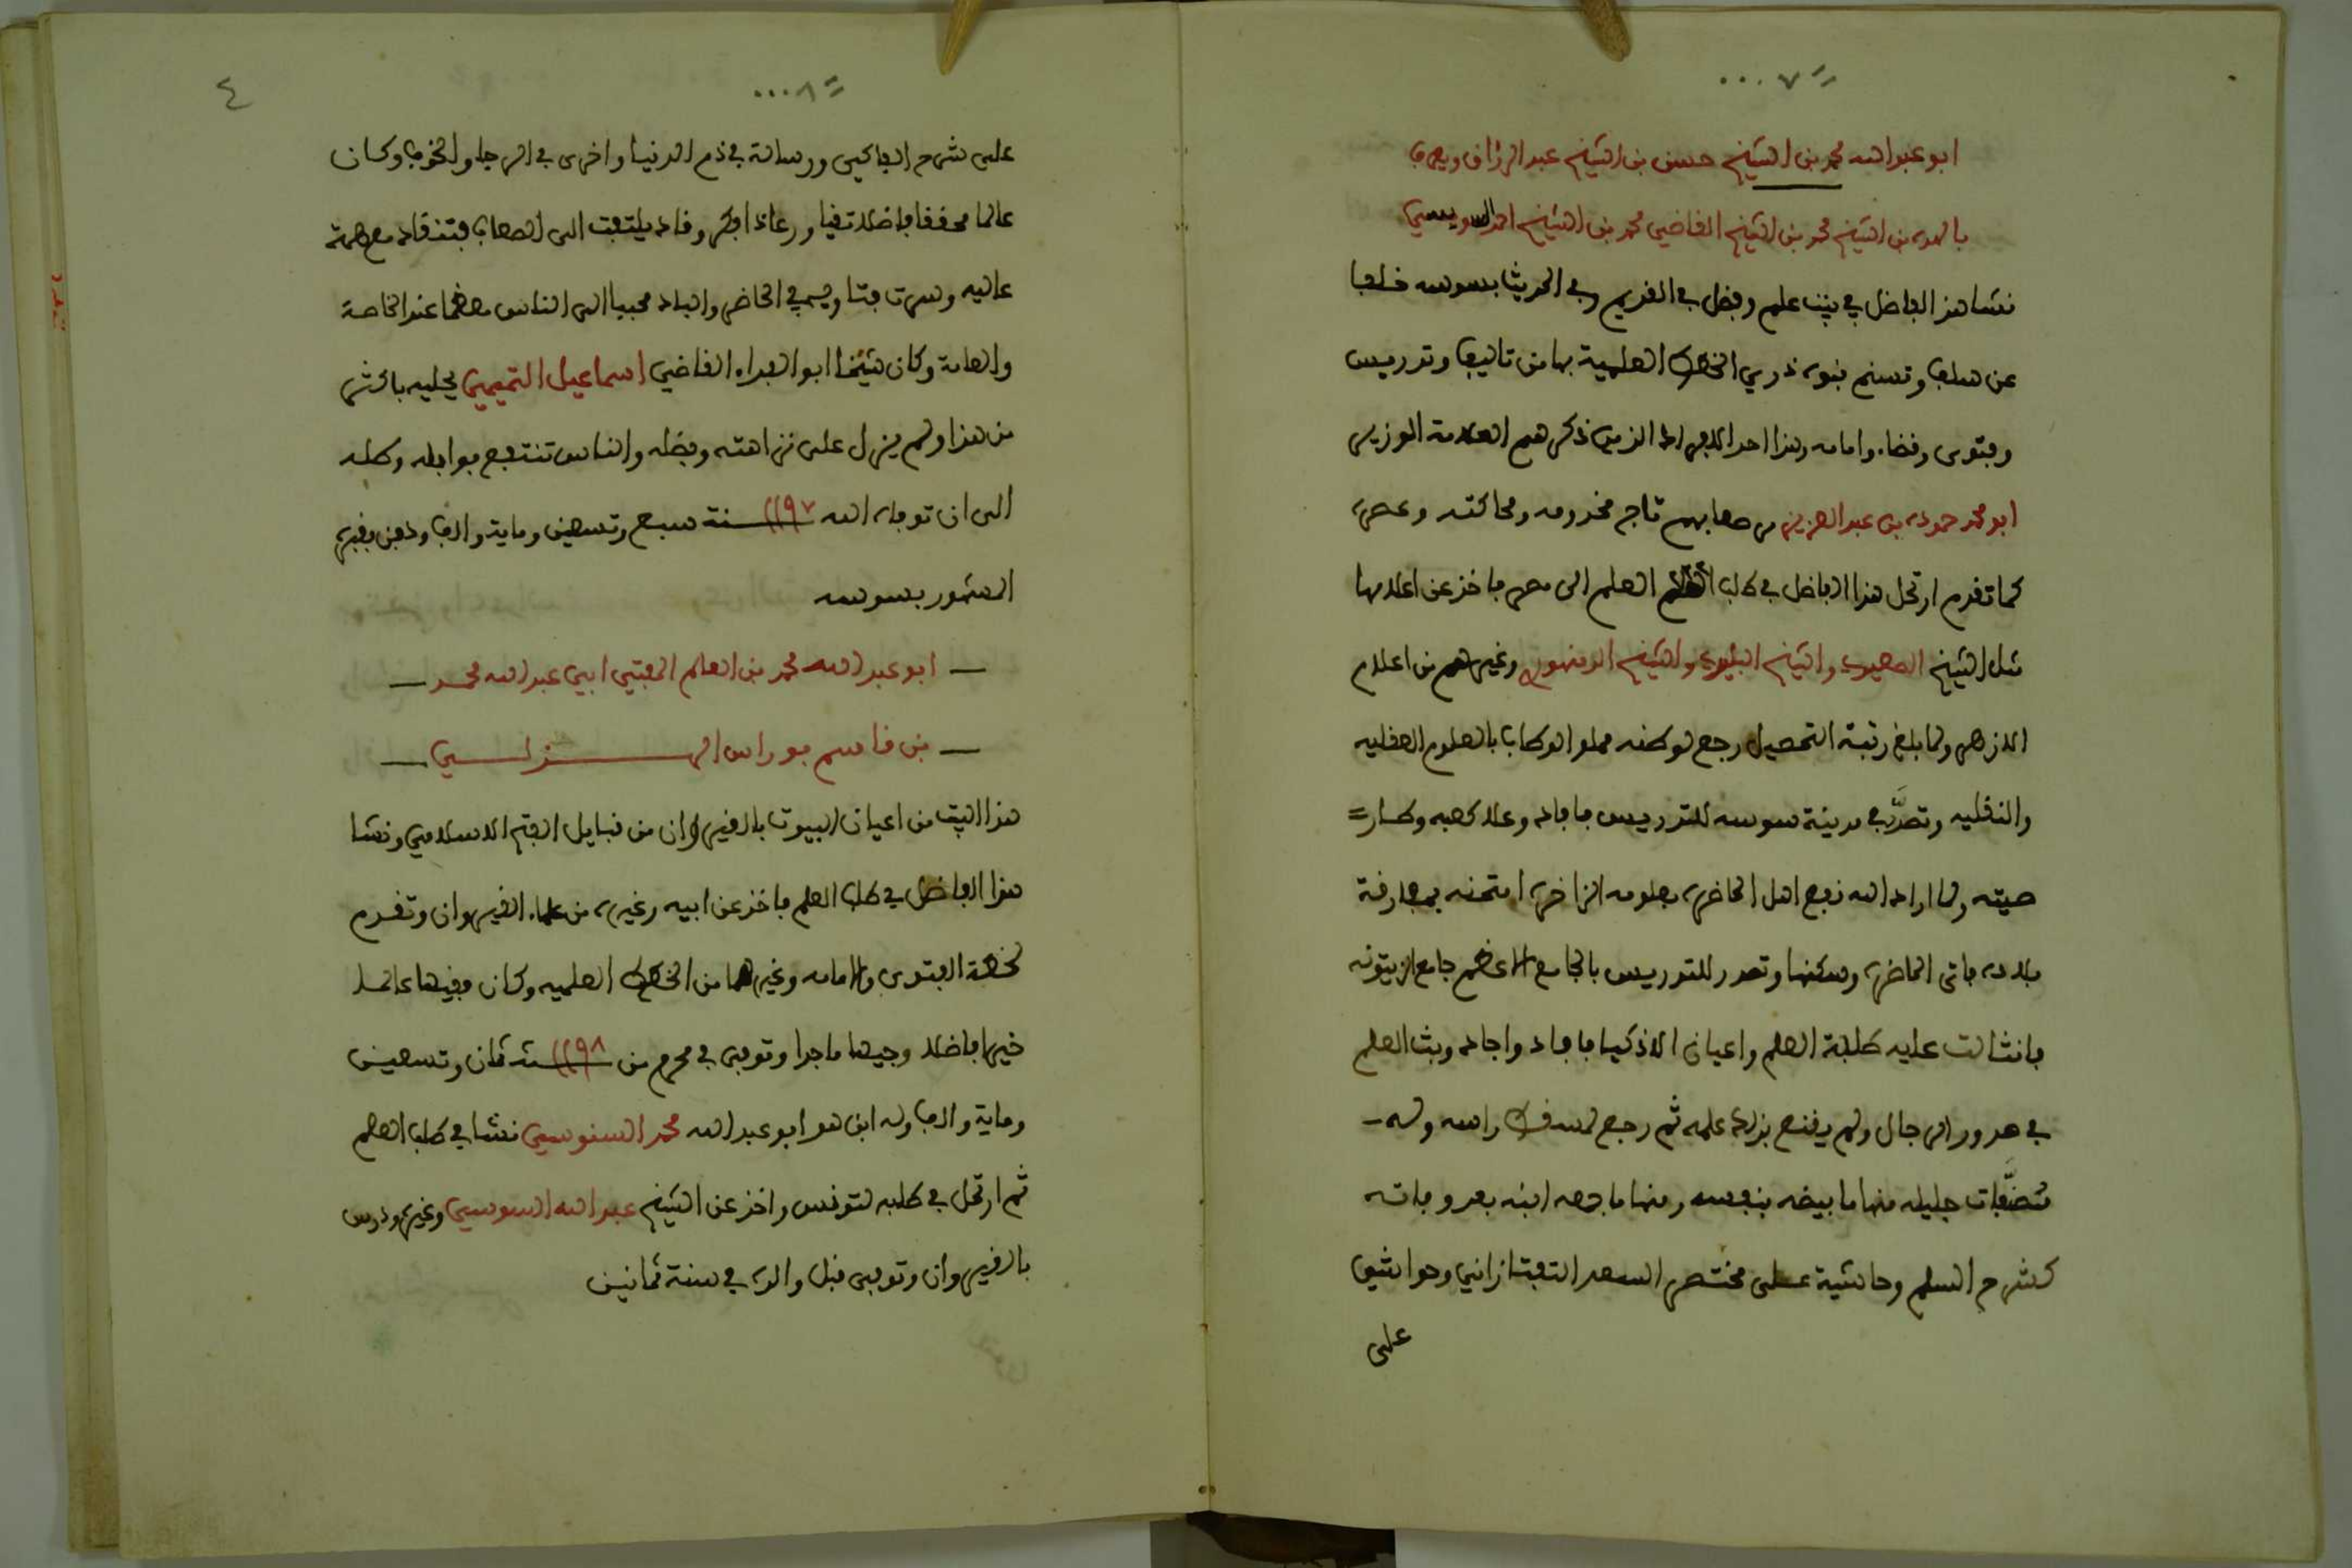 ٠٠٠٧
ابو عبد الله محمد بن الشيخ حسن بن الشيخ عبد الرزاق ويعرف
بالهده بن الشيخ محمد بن الشيخ القاضي محمد بن الشيخ احمد السويسي
نشا هذا الفاضل في بيت علم وفضل في القديم وفي الحديث بسوسه خلفا
عن سلف وتسنم بنوه ذرى الخطط العلمية بها من تاليف وتدريس
وفتوى وقضاء وامامه وهذا احد الافراد الذين ذكرهم العلامة الوزير
ابو محمد حموده بن عبد العزيز تاج مخدومه ومحاكته وعصره
كما تقدم ارتحل هذا الفاضل في طلب العلم الى مصر فاخذ عن اعلامها
مثل الشيخ الصعيدي والشيخ البليدي والشيخ الدمنهوري وغيرهم من اعلام
الازهر ولما بلغ رتبة التحصيل رجع لوطنه مملو الوطاب بالعلوم العقليه
والنقليه وتصدر في مدينة سوسه للتدريس فافاد وعلا كعبه وطار
صيته ولما اراد الله نفع اهل الحاضره بعلومه الزاخره امتحنه بمفارقة
بلاده فاتى الحاضره وسكنها وتصدر للتدريس بالجامع الاعظم جامع الزيتونه
فانثالت عليه طلبة العلم واعيان الاذكيا فافاد واجاد وبث العلم
في صدور الرجال ولم يقنع بذلك علمه ثم رجع لمسقط راسه وله
مصنفات جليله منها ما بيضه بنفسه ومنها ما جمعه ابنه بعد وفاته
كشرح السلم وحاشية على مختصر السعد التفتازاني وحواشي
على
٠٠٠٨
٤
على شرح الفاكهي ورسالة في ذم الدنيا واخرى في الرجا والخوف وكان
عالما محققا فاضلا تقيا ورعا ذا فكر وقاد يلتفت الى الصعاب فتنقاد مع همة
عاليه وسرت فتاويه في الحاضر والباد محببا الى الناس معظما عند الخاصة
والعامة وكان شيخنا ابو الفداء القاضي اسماعيل التميمي يحليه باكثر
من هذا ولم يزل على نزاهته وفضله والناس تنتفع بوابله وطله
الى ان توفاه الله سنة ١١٩٧ سبع وتسعين وماية والف ودفن بقبره
المشهور بسوسه
ابو عبد الله محمد بن العالم المفتي ابي عبد الله محمد
بن قاسم بوراس الهزلي
هذا البيت من اعيان البيوت بالقيروان من قبايل الفتح الاسلامي ونشا
هذا الفاضل في طلب العلم فاخذ عن ابيه وغيره من علماء القيروان وتقدم
لخطة الفتوى والامامه وغيرهما من الخطط العلميه وكان فقيها عالما
خيرا فاضلا وجيها ماجدا وتوفى في محرم من سنة ١١٩٨ ثمان وتسعين
وماية والف وله ابن هو ابو عبد الله محمد السنوسي نشا في طلب العلم
ثم ارتحل في طلبه لتونس واخذ عن الشيخ عبد الله السوسي وغيره ودرس
بالقيروان وتوفى قبل والده في سنة ثمانين